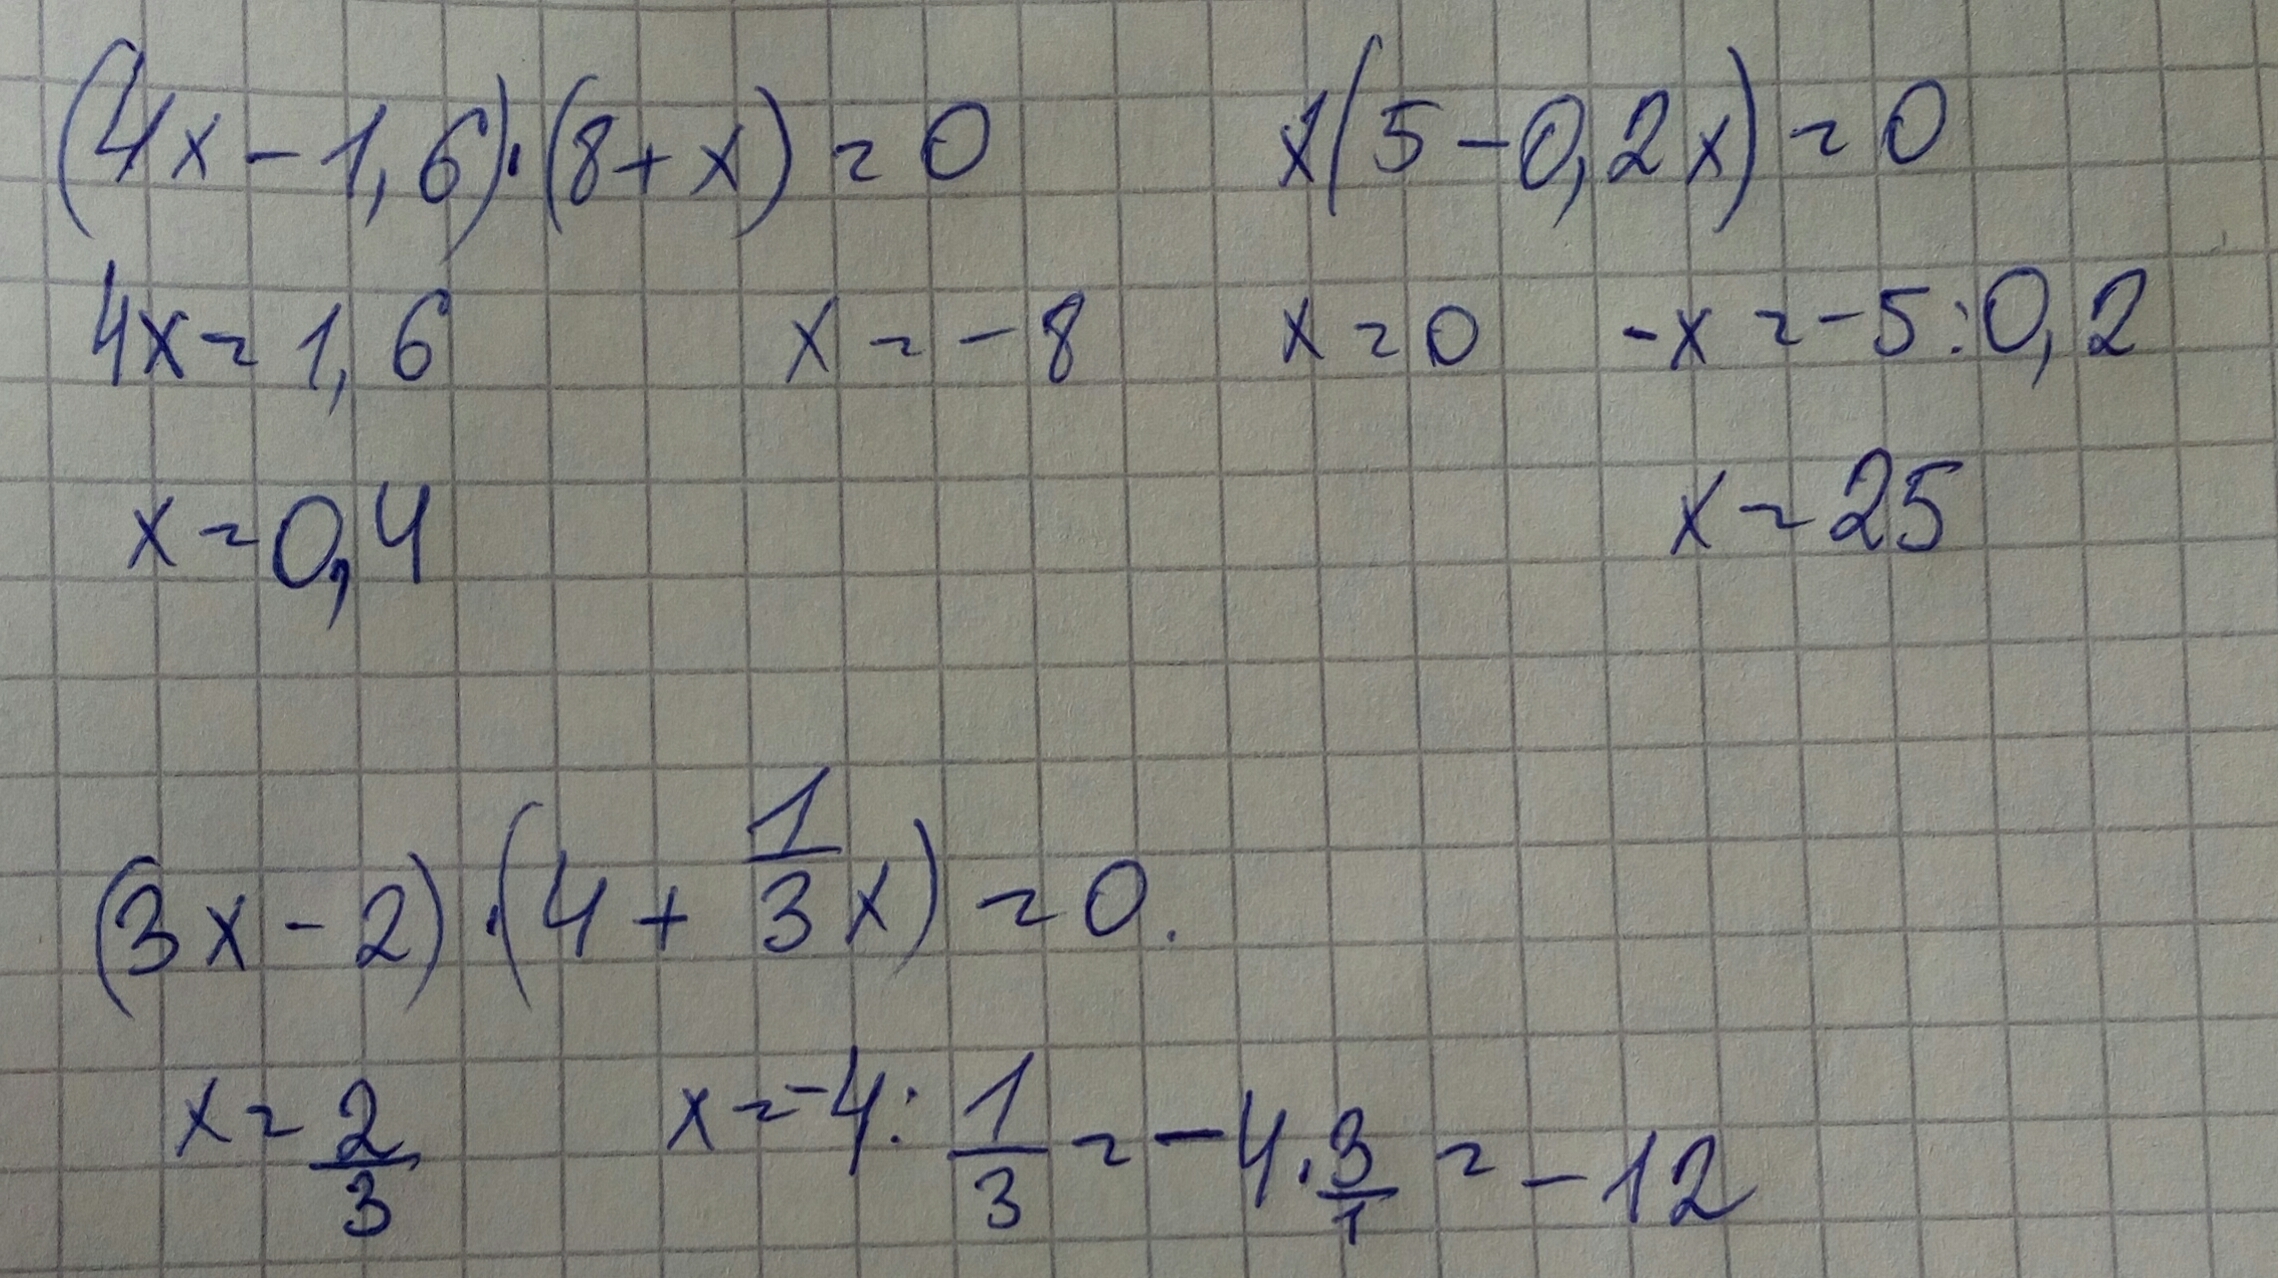 (4x-1,6)·(8+x)=0
4x=1,6 x=-8
x=0,4
x(5-0,2x)=0
x=0 -x=-5:0,2
x=25
(3x-2)·(4+1/3x)=0.
x=2/3 x=-4:1/3=-4·3/1=-12